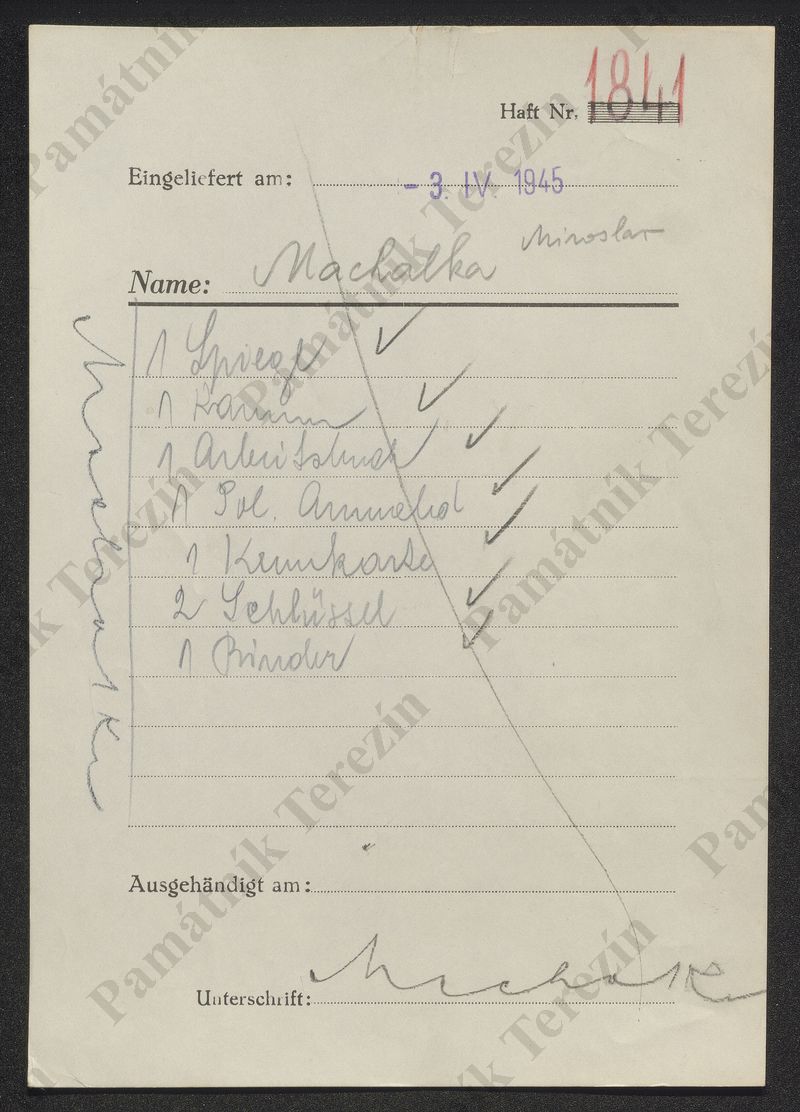 Haft Nr. 1841
Eingeliefert am: - 3. IV. 1945
Miroslav
Name: Machalka
1 Spiegel
1 Kamm
1 Arbeitsbuch
1 Pol. Anmeld
1 Kennkarte
2 Schlüssel
1 Binder
Machalka
Ausgehändigt am:
Unterschrift: Machalka
Památník Terezín